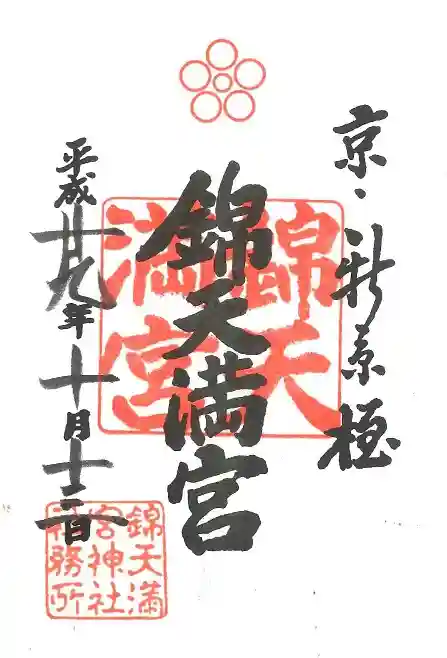 京・新京極
錦天満宮
錦天
満宮
平成廿九年十月十二日
錦天満
宮神社
社務所